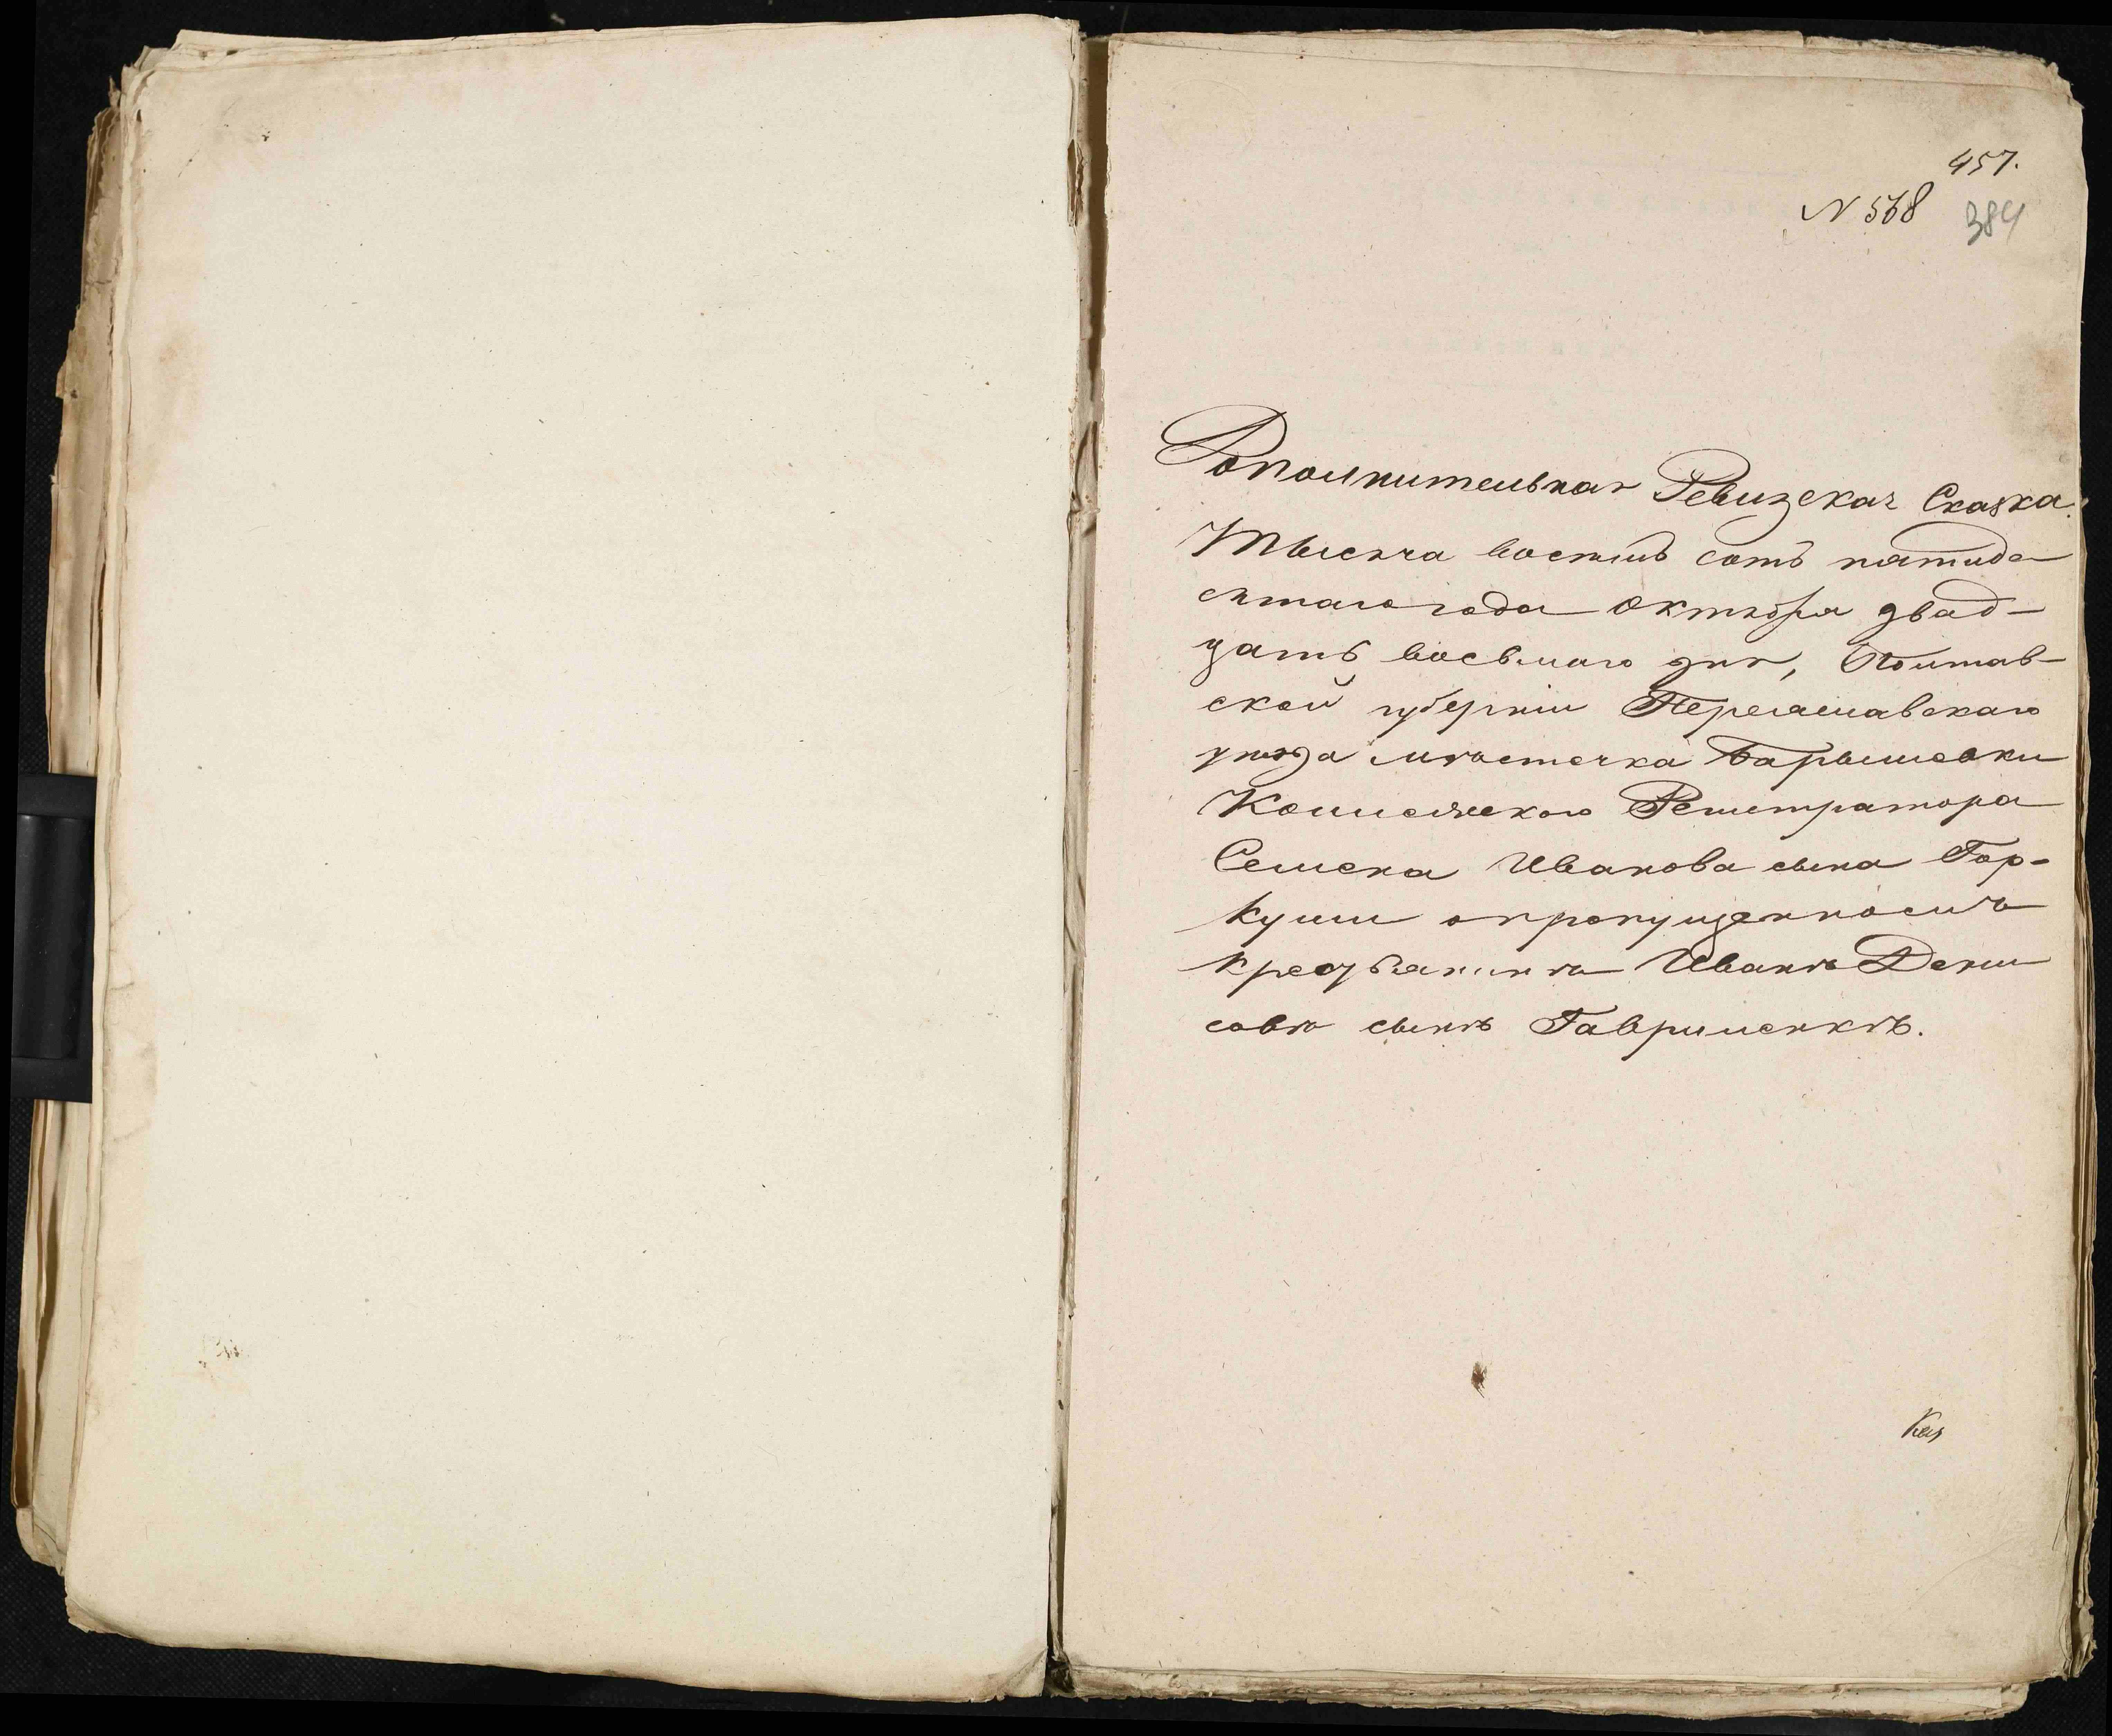 457.
N 568 384
Дополнительная Ревизская Сказка.
Тысяча восемь сотъ пятиде
сятаго года Октября двад-
цать восьмого дня, Полтав-
ской губерніи Переяславскаго
уѣзда мѣстечка Барышевки
Коллежскаго Регистратора
Семена Иванова сына Гор-
куши о пропущенномъ
крестьянинѣ Иванѣ Дени
совѣ сынѣ Гавриленкѣ.